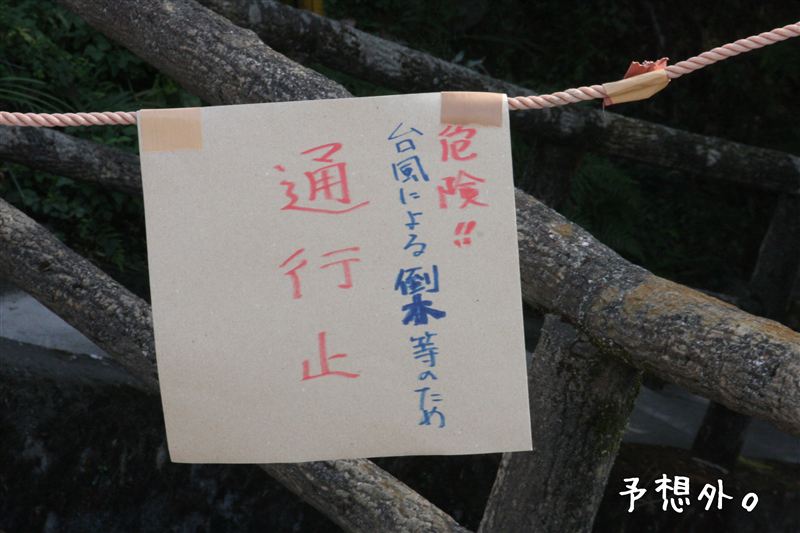 危険!!
台風による倒木等のため
通行止
予想外。